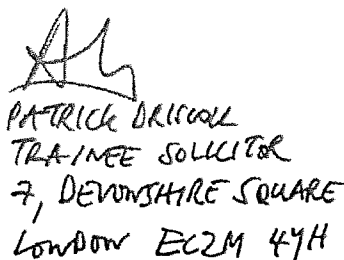 PATRICK DRISCOLL
TRAINEE SOLICITOR
7, DEVONSHIRE SQUARE
LONDON EC2M 4YH